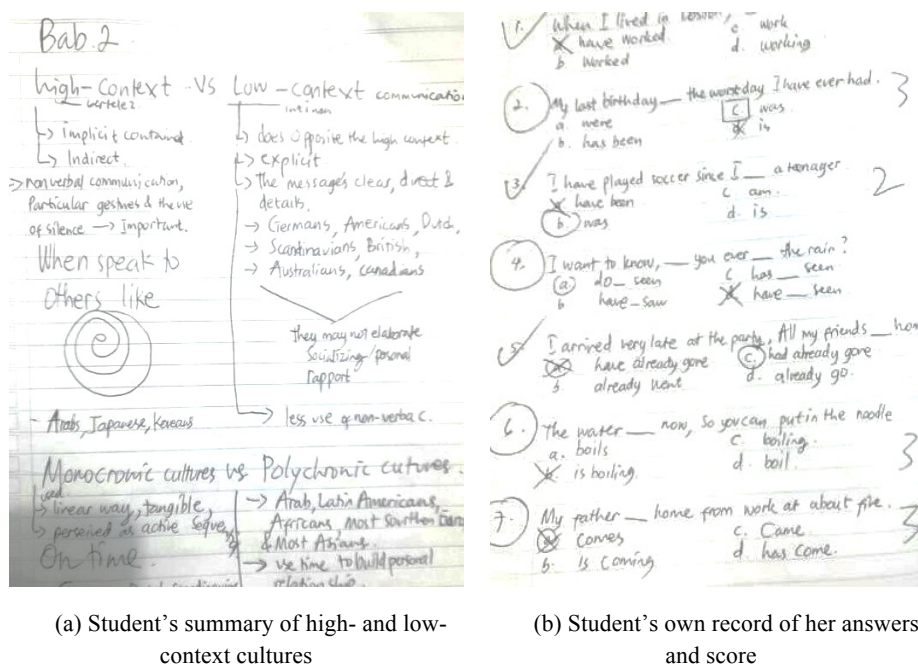 Bab.2
high-Context VS Low-context communication
bertele2
→ implicit contained
→ Indirect.
→ nonverbal communication,
Particular gestures & the use
of silence → Important.
When speak to
Others like
- Arabs, Japanese, Koreans
→ does opposite the high context
→ explicit
→ The message's clear, direct &
details.
→ Germans, Americans, Dutch,
→ Scandinavians, British,
→ Australians, Canadians
They may not elaborate
Socializing/personal
rapport
→ less use of non-verbal c.
Monocronic cultures vs Polychronic cutures.
used
→ linear way, tangible,
→ perseived as active
On time
→ Arab, Latin Americans,
Africans, most Southern
& Most Asians
→ use time to build personal
relationship.
1. When I lived in
a have worked. c. work
b worked d. working
2. My last birthday __ the worst day I have ever had. 3
a. were c. was
b. has been d is
3. I have played soccer since I __ a teenager 2
a have been c am.
b was d. is
4. I want to know, __ you ever __ the rain?
a do_ seen c has __ seen
b have_saw d have __ seen
5. I arrived very late at the party, All my friends __
a have already gone c. had already gone
b. already went d. already go.
6. The water __ now, so you can put in the noodle 3
a. boils c. boiling.
b. is boiling. d. boil.
7. My father __ home from work at about five. 3
a comes c. Came
b. is coming d has come.
(a) Student's summary of high- and low-
context cultures
(b) Student's own record of her answers
and score